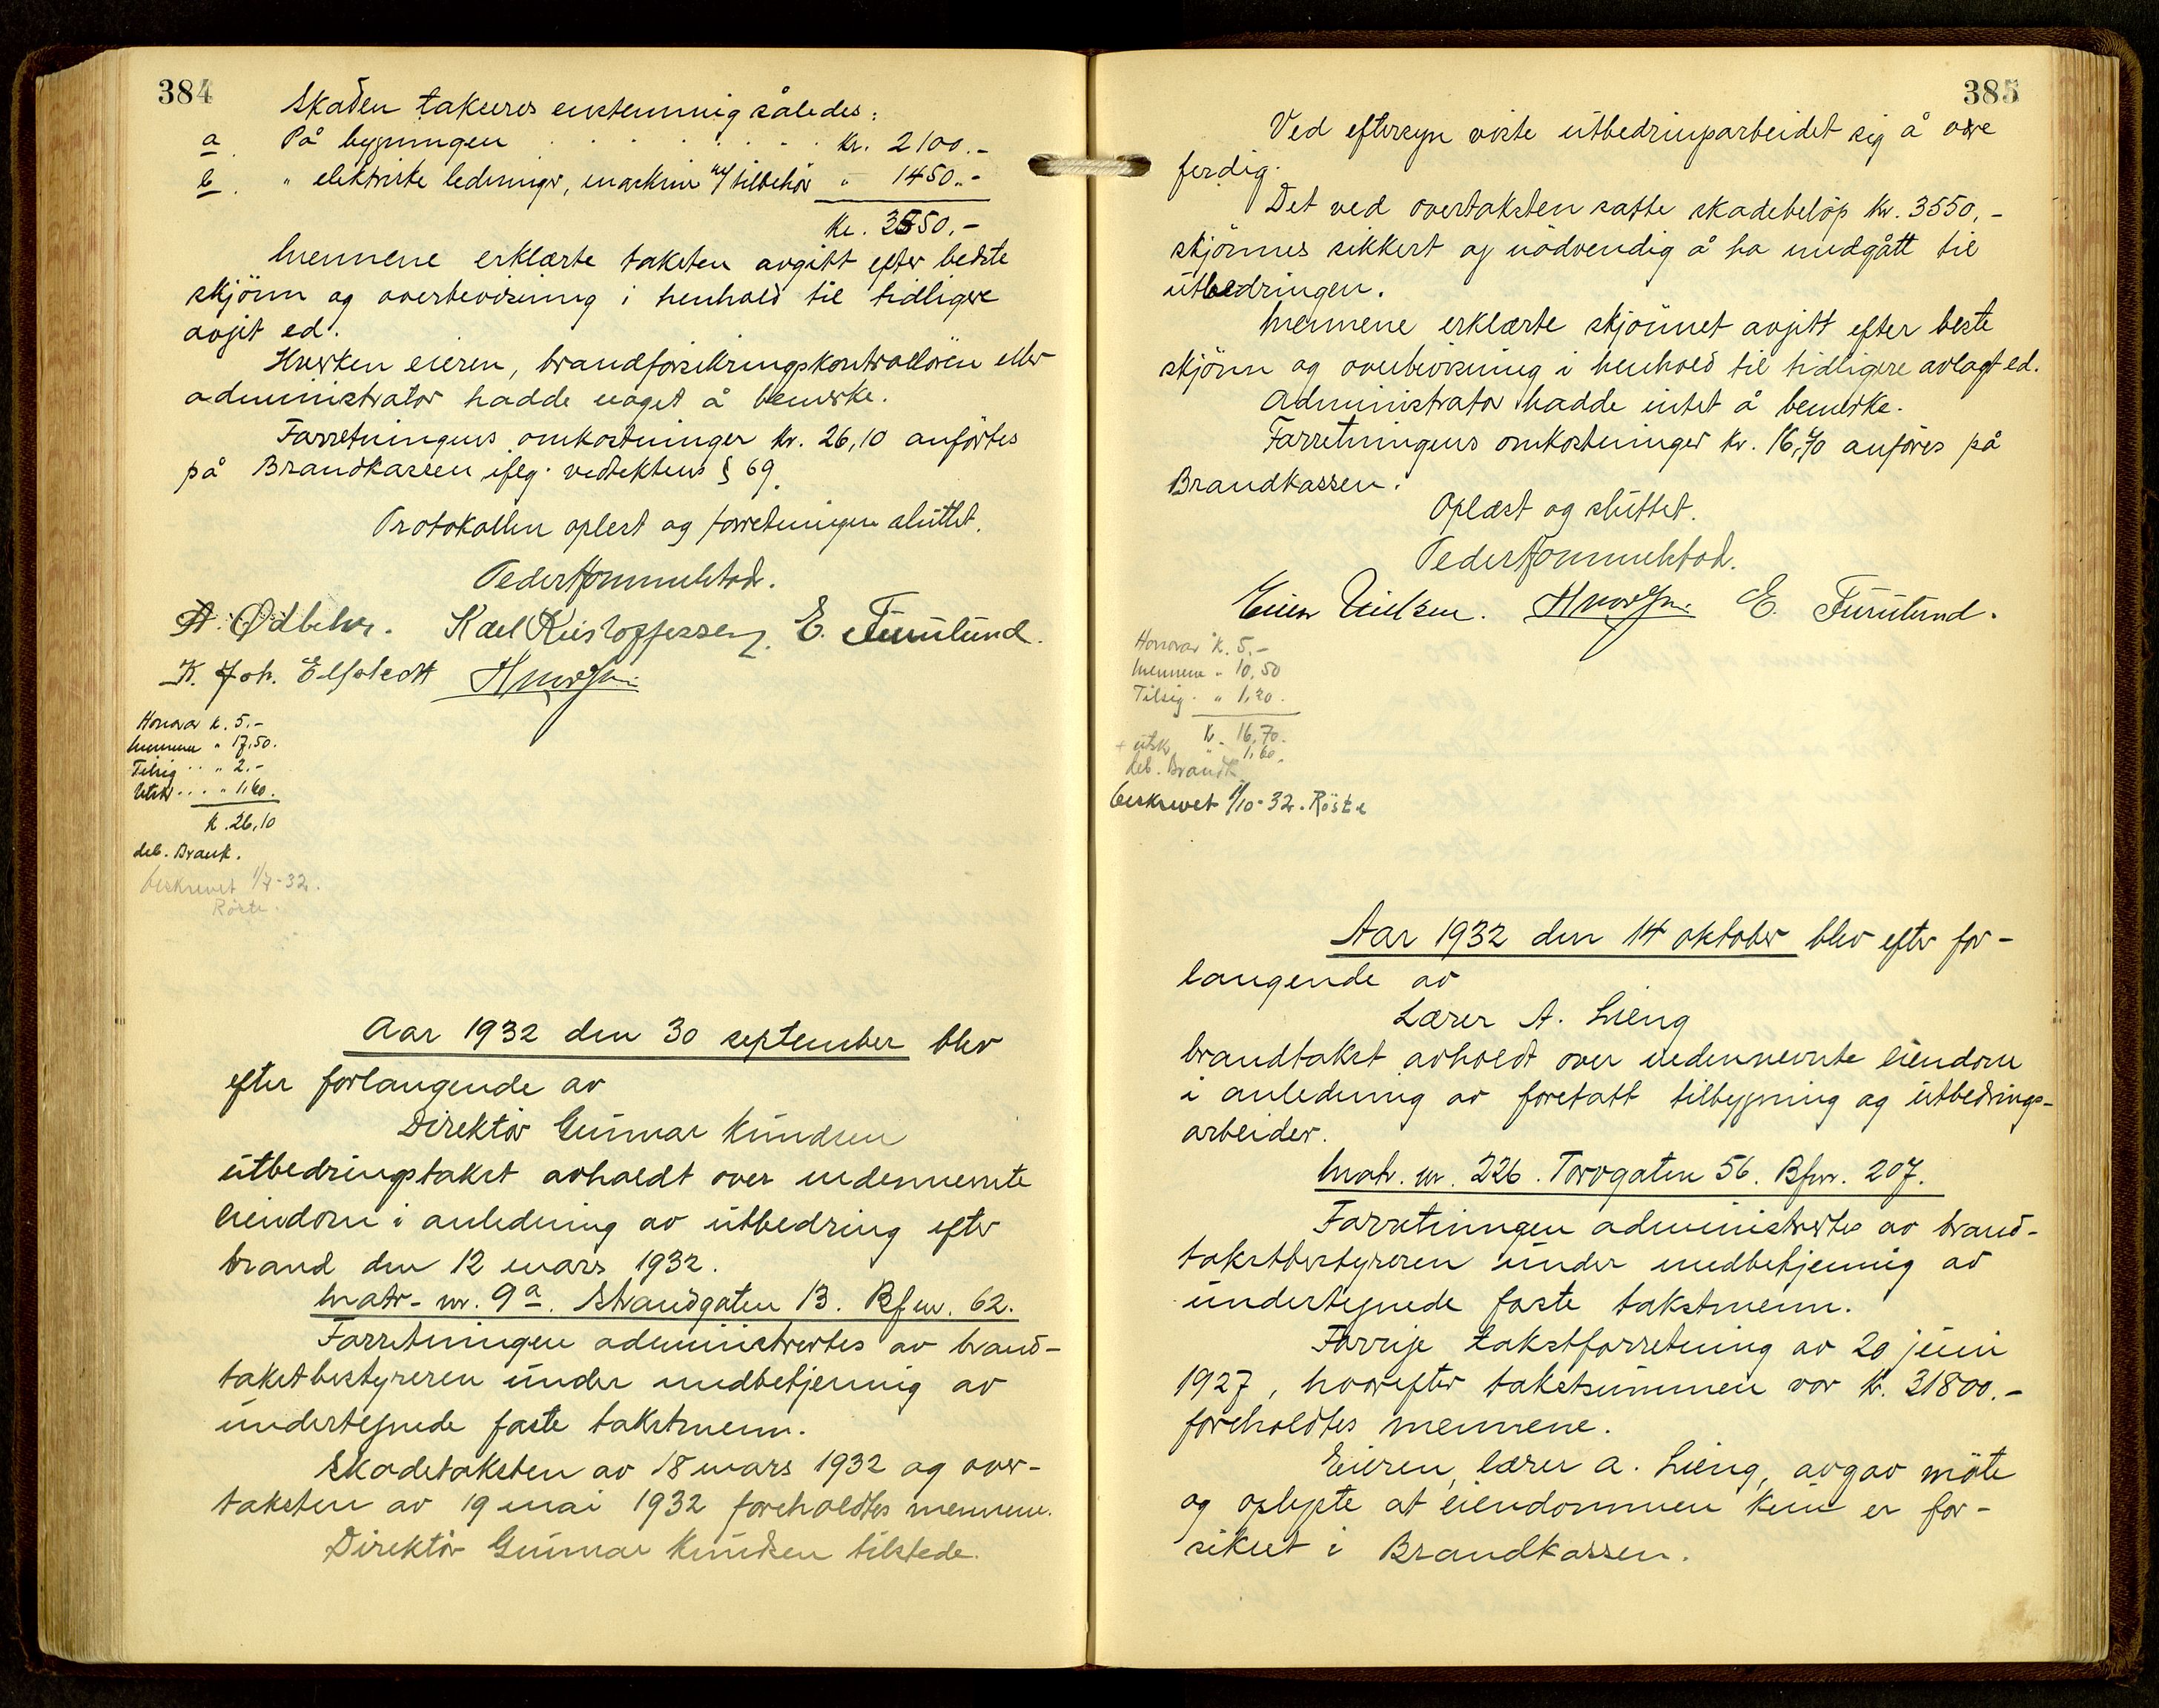 384
Skaden takseres enstemmig således:
a. På bygningen . . . . . . . kr. 2100.-
b. " elektriske ledninger, maskine m/ tilbehör " 1450.-
Kr. 3550,-
Mennene erklærte taksten avgitt efter bedste
skjönn og overbevisning i henhold til tidligere
avgit ed.
Hverken eieren, brandforsikringskontrollören eller
administrator hadde noget å bemerke.
Forretningens omkostninger kr. 26,10 anförtes
på Brandkassen iflg. vedtektens § 69.
Protokollen oplest og forretningen sluttet.
Peder Hommelstad.
A. Ødbehr. Karl Kristoffersen, E. Furulund.
K. Joh. Elfstedt
Honorar k. 5.-
Mennene " 17,50.
Tilsig " 2.-
Utskr . . . " 1,60.
k. 26,10
deb. Brank.
beskrevet 1/7-32.
Röste.
Aar 1932 den 30 september blev
efter forlangende av
Direktör Gunnar Knudsen
utbedringstakst avholdt over nedennevnte
eiendom i anledning av utbedring efter
brand den 12 mars 1932.
Matr. nr. 9a. Strandgaten 13. Bf nr. 62.
Forretningen administrertes av brand-
takstbestyreren under medbetjening av
undertegnede faste takstmenn.
Skadetaksten av 18 mars 1932 og over-
taksten av 19 mai 1932 foreholdtes mennene.
Direktör Gunnar Knudsen tilstede.
385
Ved eftersyn viste utbedringsarbeidet sig å være
ferdig.
Det ved overtaksten satte skadebelöp kr. 3550,-
skjönnes sikkert og nödvendig å ha medgått til
utbedringen.
Mennene erklærte skjönnet avgitt efter beste
skjönn og overbevisning i henhold til tidligere avlagt ed.
Administrator hadde intet å bemerke.
Forretningens omkostninger kr. 16,70 anföres på
Brandkassen.
Oplæst og sluttet.
Peder Hommelstad.
Einar Nielsen. E. Furulund.
Honorar k. 5.-
Mennene " 10,50
Tilsig. " 1,20.
k. 16,70.
+ utskr " 1,60.
deb. Brandk.
beskrevet 1/10-32. Röste
Aar 1932 den 14 oktober blev efter for-
langende av
Lærer A. Lieng
brandtakst avholdt over nedennevnte eiendom
i anledning av foretatt tilbygning og utbedrings-
arbeider.
Matr. nr. 226. Torvgaten 56. Bfnr. 207.
Forretningen administrertes av brand-
takstbestyreren under medbetjening av
undertegnede faste takstmenn.
Forrige takstforretning av 20 juni
1927, hvorefter takstsummen var kr. 31800.-
foreholdtes mennene.
Eieren, lærer A. Lieng, avgav möte
og oplyste at eiendommen kun er for-
sikret i Brandkassen.